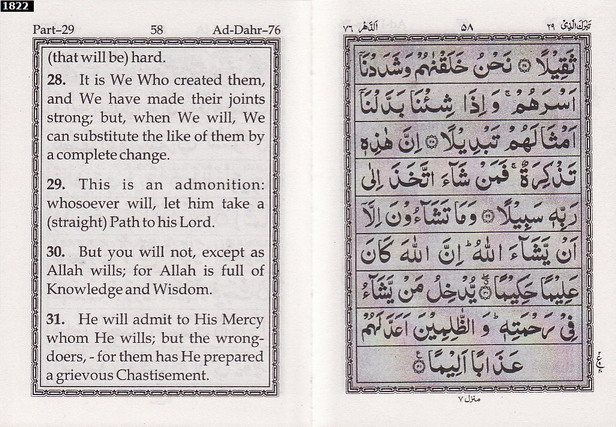 1822
Part–29 58 Ad-Dahr–76
(that will be) hard.
28. It is We Who created them,
and We have made their joints
strong; but, when We will, We
can substitute the like of them by
a complete change.
29. This is an admonition:
whosoever will, let him take a
(straight) Path to his Lord.
30. But you will not, except as
Allah wills; for Allah is full of
Knowledge and Wisdom.
31. He will admit to His Mercy
whom He wills; but the wrong-
doers, - for them has He prepared
a grievous Chastisement.
تبٰرك الذی ٢٩ ٥٨ الدّهر ٧٦
ثَقِيْلًا ۝٢٧ نَحْنُ خَلَقْنٰهُمْ وَشَدَدْنَاۤ
اَسْرَهُمْ ۚ وَاِذَا شِئْنَا بَدَّلْنَاۤ
اَمْثَالَهُمْ تَبْدِيْلًا ۝٢٨ اِنَّ هٰذِهٖ
تَذْكِرَةٌ ۚ فَمَنْ شَآءَ اتَّخَذَ اِلٰى
رَبِّهٖ سَبِيْلًا ۝٢٩ وَمَا تَشَآءُوْنَ اِلَّاۤ
اَنْ يَّشَآءَ اللّٰهُ ؕ اِنَّ اللّٰهَ كَانَ
عَلِيْمًا حَكِيْمًا ۝٣٠ يُّدْخِلُ مَنْ يَّشَآءُ
فِيْ رَحْمَتِهٖ ؕ وَالظّٰلِمِيْنَ اَعَدَّ لَهُمْ
عَذَابًا اَلِيْمًا ۝٣١
منزل ٧